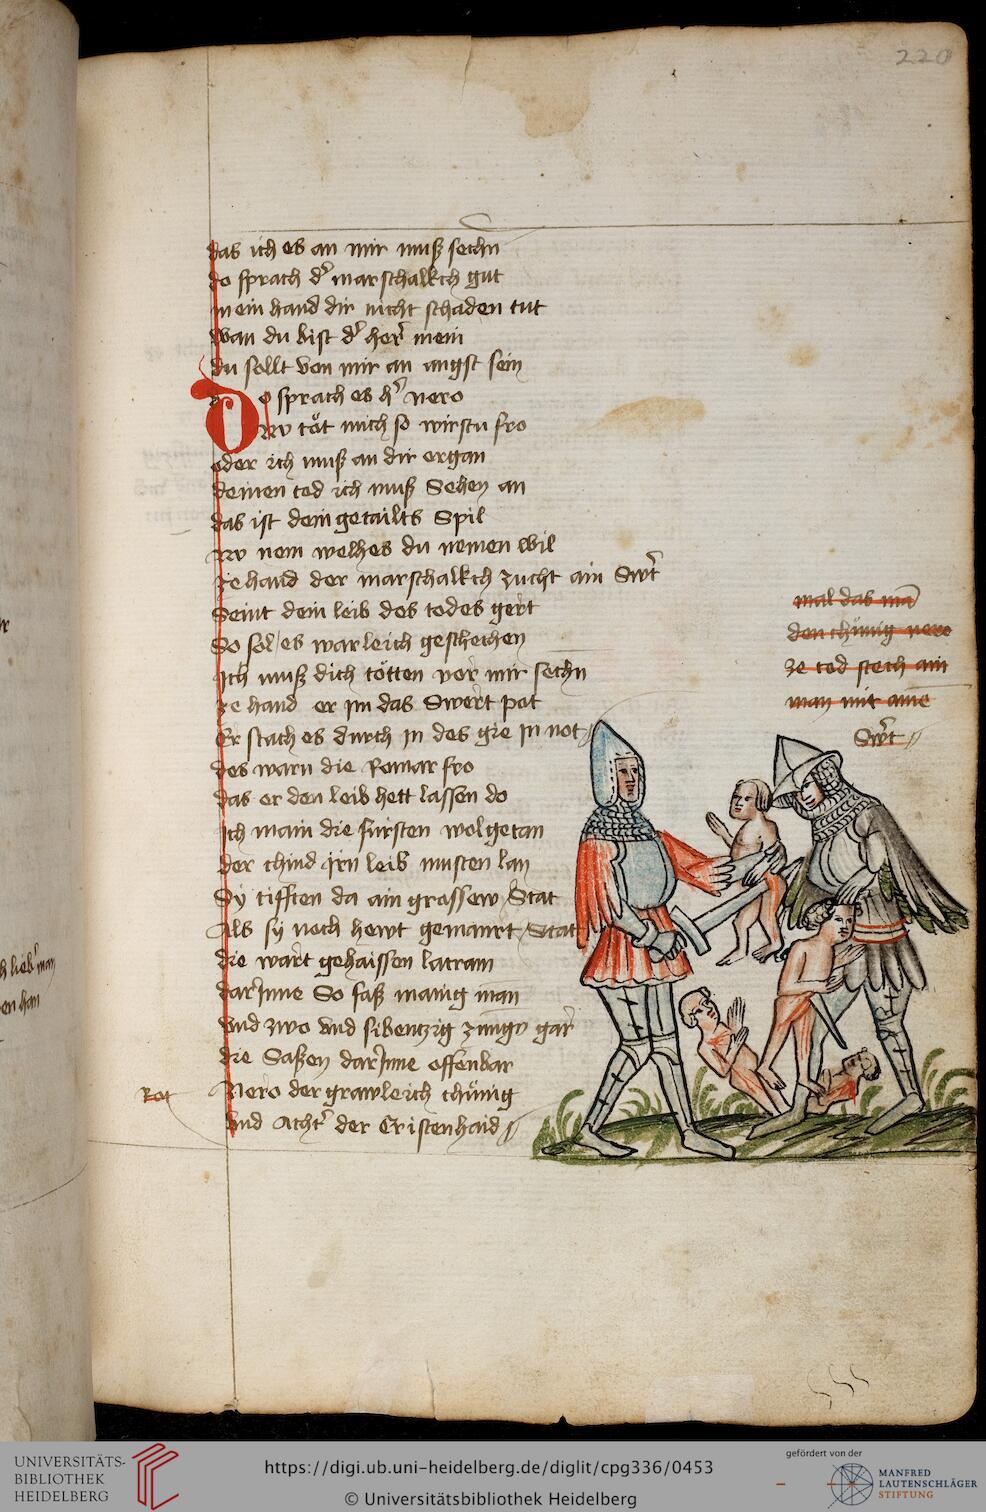 220
das ich es an mir muß sechn
do sprach d' marschalkch gut
mein hand dir nicht schaden tut
wan du bist d' her' mein
du sollt von mir an angst sein
Do sprach es h' nero
Nv töt mich so wirstu fro
oder ich muß an dir ergan
deinen tod ich muß Sehen an
das ist dein getailts Spil
Nv nem welhes du nemen wil
ze hand der marschalkch zucht ain Sw't
Seint dein leib des todes gert
So sol es warleich geschechen
Ich muß dich tötten vor mir sechn
ze hand er im das Swert pot
Er stach es durch in des gie in not
des warn die Romar fro
das er den leib hett lassen do
Ich main die fürsten wolgetan
der chind irn leib musten lan
Sy tifften da ain grossew Stat
Als sy noch hewt gemawrt Stat
die wart gehaissen latram
darInne So saß manig man
vnd zwo vnd sibentzig zung gar
die Saßen darInne offenbar
Nero der grawleich chünig
vnd Acht' der Cristenhaid
Rot
mal das man
den chünig nero
ze tod stech ain
man mit aine
Sw't
h lieb man
en han
UNIVERSITÄTS-
BIBLIOTHEK
HEIDELBERG
https://digi.ub.uni-heidelberg.de/diglit/cpg336/0453
© Universitätsbibliothek Heidelberg
gefördert von der
MANFRED
LAUTENSCHLÄGER
STIFTUNG